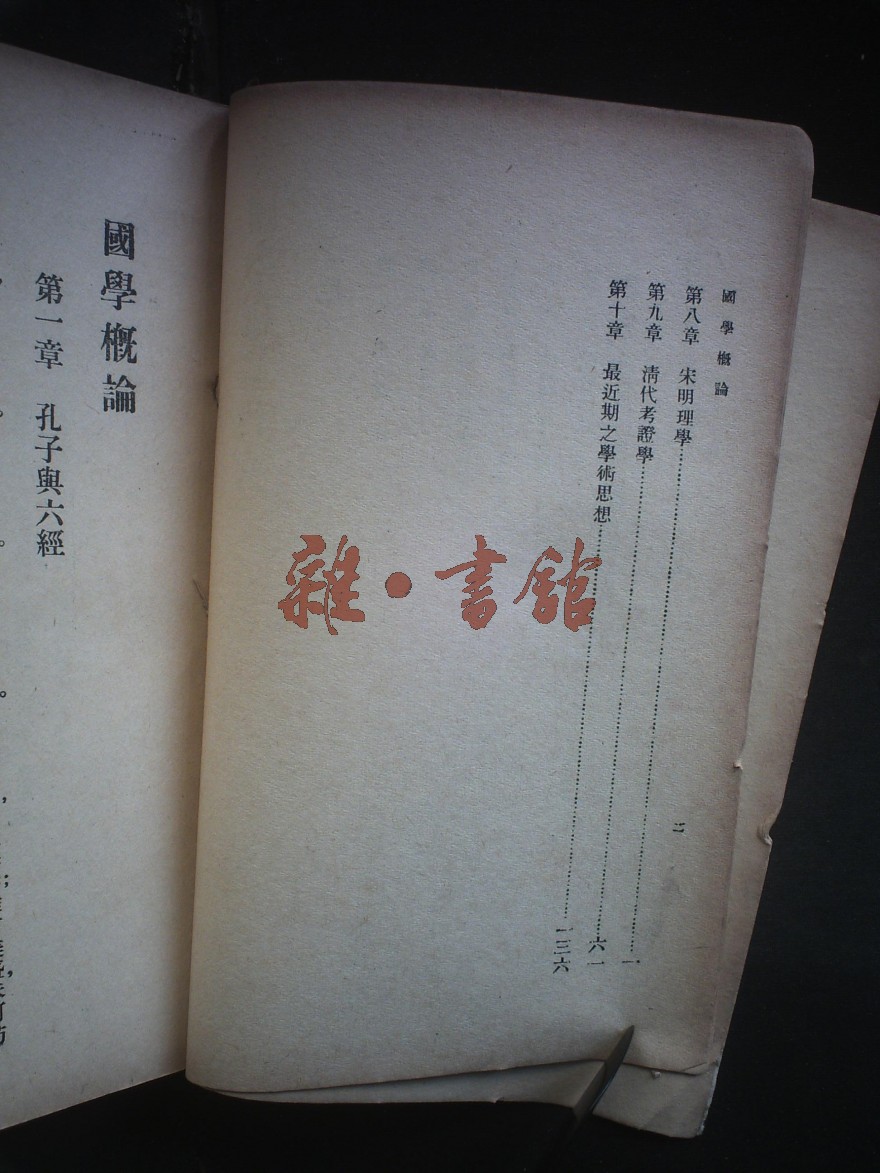 國學概論
第八章 宋明理學……一
第九章 清代考證學……六一
第十章 最近期之學術思想……一三六
二
國學概論
第一章 孔子與六經
雜·書館